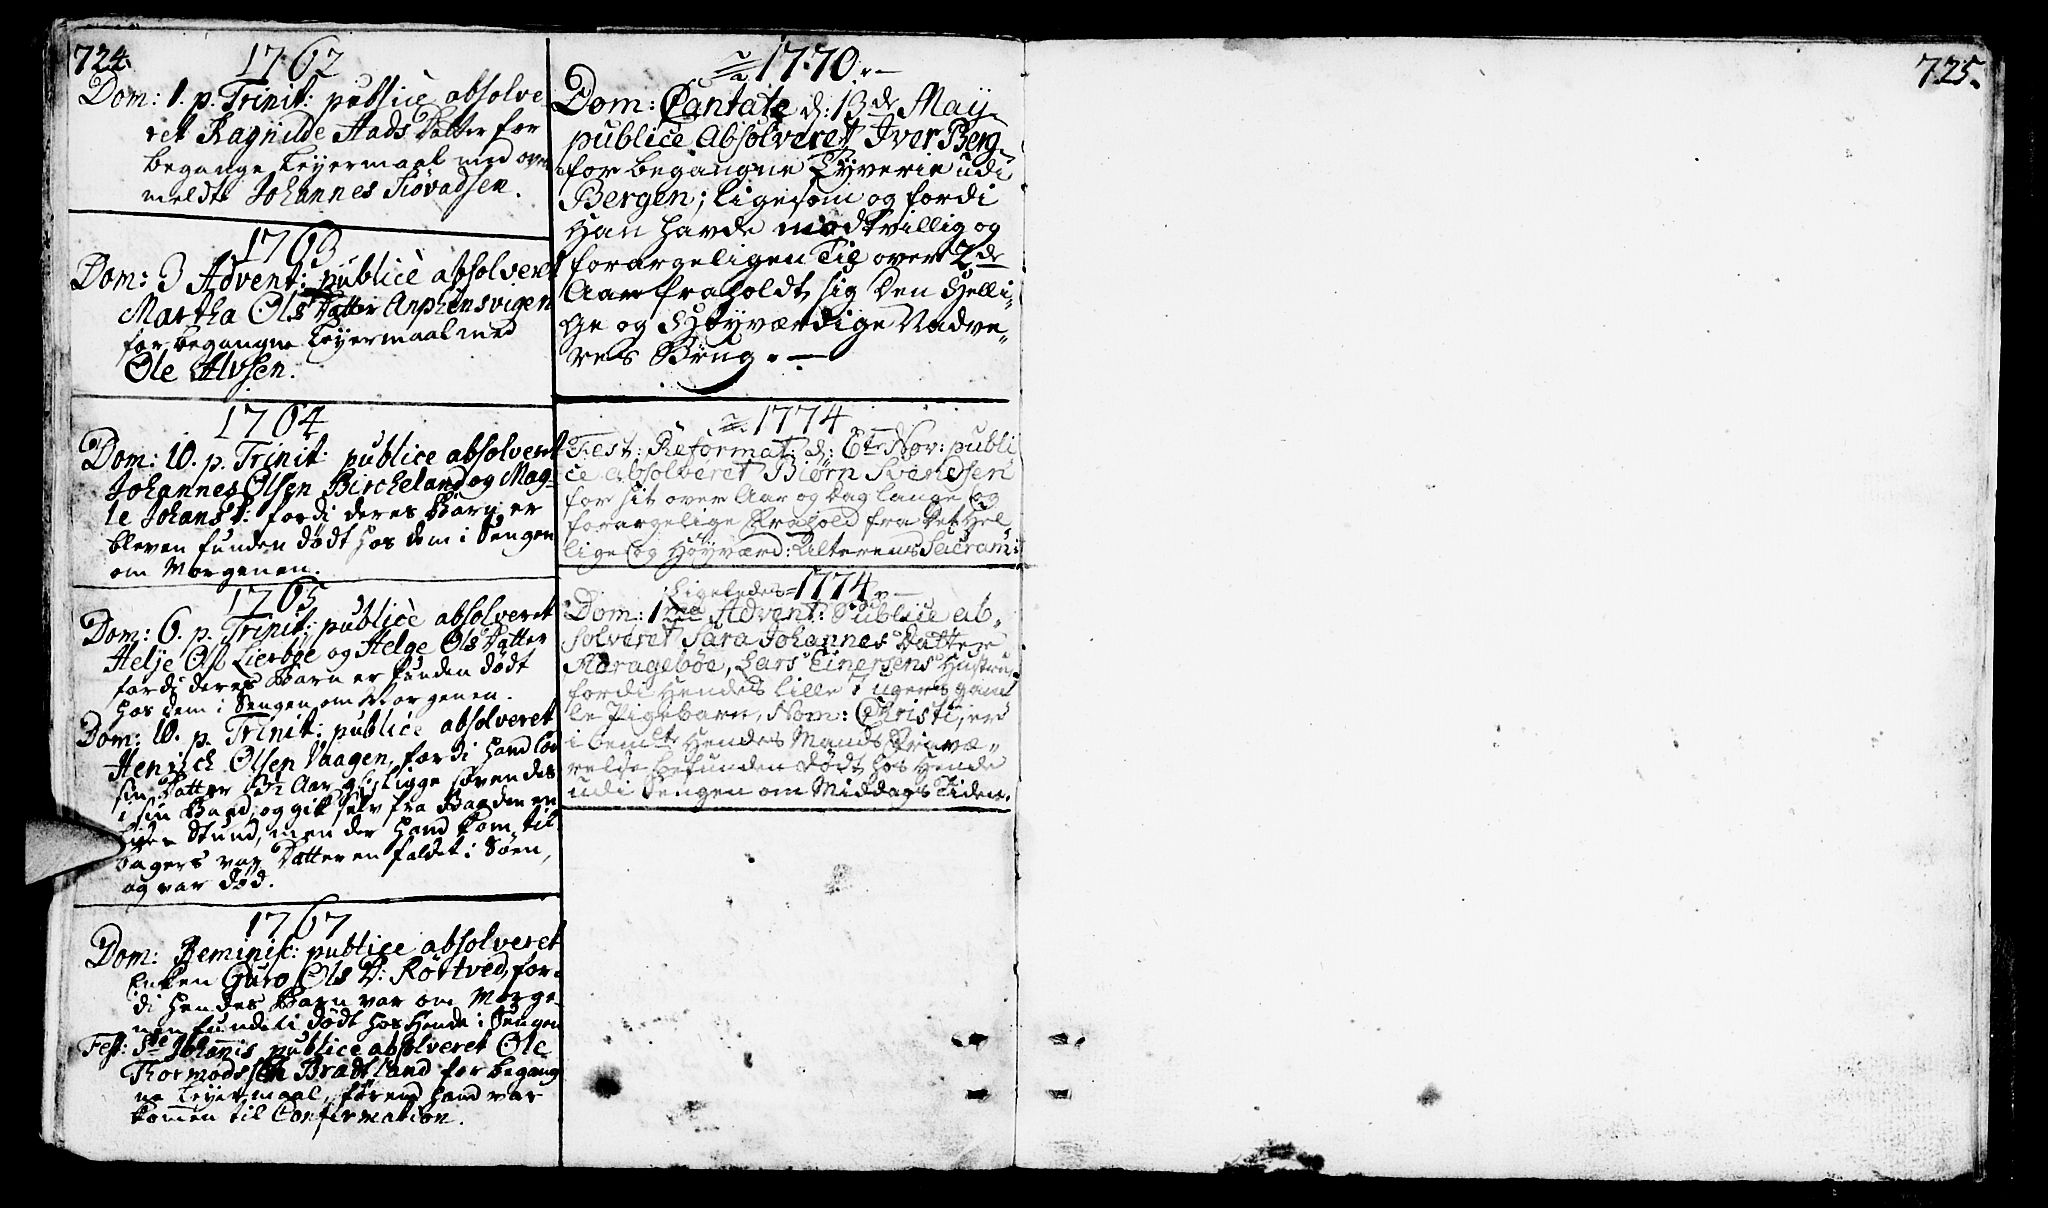 724.
1762
Dom: 1. p. Trinit: publicè absolve-
ret Ragnilde Aads Datter for
begangne Leyermaal med oven
meldte Johannes Siovadsen.
1763
Dom: 3 Advent: publicè absolveret
Martha Ols Datter
for begangne Leyermaal med
Ole Alvsen.
1764
Dom: 10. p. Trinit: publice absolveret
Johannes Olsen Bircheland og Mag-
le Johans D: fordi deres Barn er
bleven funden dødt hos dem i Sengen
om Morgenen.
1765
Dom: 6. p. Trinit: publicè absolveret
Helje Ols Lierbøe og Helge Ols Datter
fordi deres Barn er funden dødt
hos dem i Sengen om Morgenen.
Dom: 10. p. Trinit: publice absolveret
Henrich Olsen Vaagen, fordi hand lod
sin Datter Aar g: ligge sovendes
i sin Baad, og gik selv fra Baaden en
liden Stund, men der hand kom til-
bagers var Datteren faldet i Søen,
og var død.
1767
Dom: Reminisc: publice absolveret
Enken Guro Ols D: Rörtved, for-
di hendes Barn var om Morge-
nen fundet dødt hos hende i Sengen
Fest: Ste Johannis publice absolveret Ole
Thormodssen Bradtland for begang
ne Leyermaal, förend hand var
kommen til Confirmation.
1770.
Dom: Cantate d: 13de May
publice Absolveret Iver Berg
for begangne Tyverie udi
Bergen; ligesom og fordi
Han havde modtvillig og
forargeligen Til over 2de
Aar fraholdt sig Den Helli-
ge og Høyværdige Nadve-
res Brug.
1774
Fest: Reformat: d: 6te Nov: publi
ce absolveret Biørn Svendsen
for sit over Aar og Dag lange og
forargelige Frahold fra Det Hel
lige og Høyværd: Alterens Sacram:
Ligeledes 1774
Dom: 1ma Advent: Publice ab-
solveret Sara Johannes Datter
Aaragebøe, Lars Einersens Hustrue
fordi Hendes lille 7 ugers gam
le Pigebarn, Nom: Christi, er
i bemelte Hendes Mands Fravæ-
relse befunden dødt hos Hende
udi Sengen om Middags Tiden.
725.